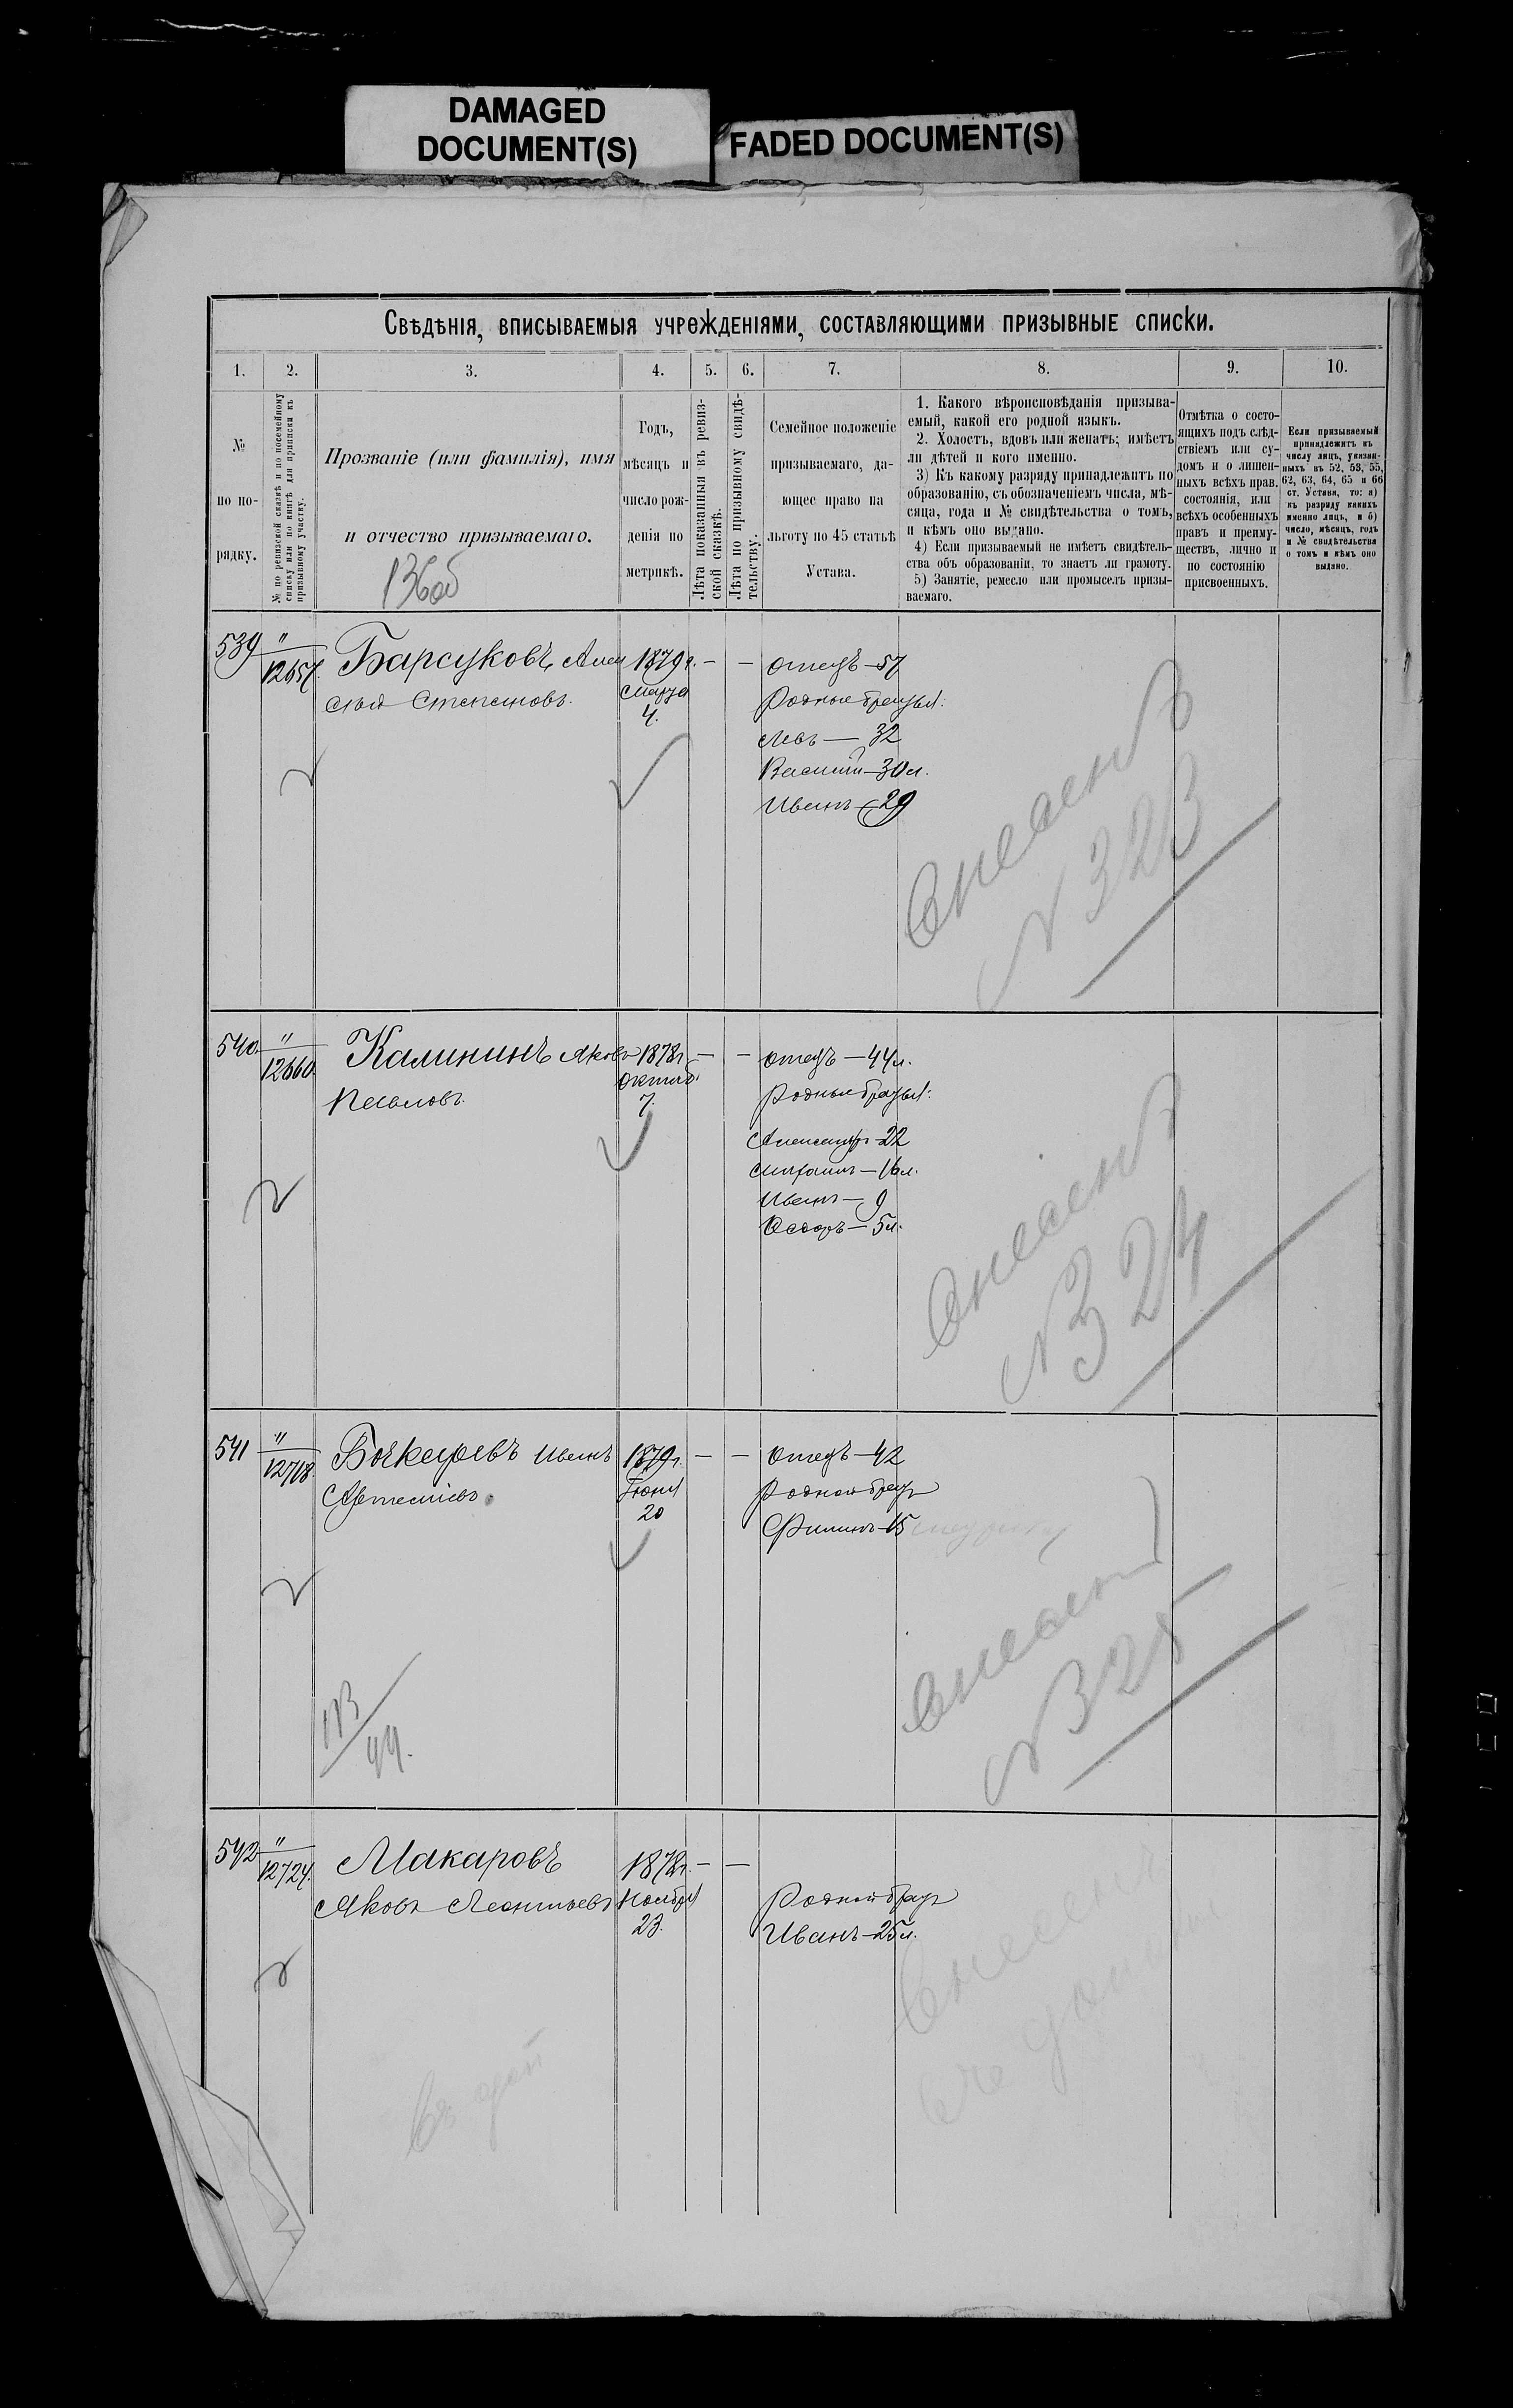 DAMAGED
DOCUMENT(S)
FADED DOCUMENT(S)
Свѣдѣнія, вписываемыя учрежденіями, составляющими призывные списки.
1. 2. 3. 4. 5. 6. 7. 8. 9. 10.
№
по по-
рядку.
№ по ревизской сказкѣ и по посемейному
списку или по книгѣ для приписки къ
призывному участку.
Прозваніе (или фамилія), имя
и отчество призываемаго.
136об
Годъ,
мѣсяцъ и
число рож-
денія по
метрикѣ.
Лѣта показанныя въ ревиз-
ской сказкѣ.
Лѣта по призывному свидѣ-
тельству.
Семейное положеніе
призываемаго, да-
ющее право на
льготу по 45 статьѣ
Устава.
1. Какого вѣроисповѣданія призыва-
емый, какой его родной языкъ.
2. Холостъ, вдовъ или женатъ; имѣетъ
ли дѣтей и кого именно.
3) Къ какому разряду принадлежитъ по
образованію, съ обозначеніемъ числа, мѣ-
сяца, года и № свидѣтельства о томъ,
и кѣмъ оно выдано.
4) Если призываемый не имѣетъ свидѣтель-
ства объ образованіи, то знаетъ ли грамоту.
5) Занятіе, ремесло или промыселъ призы-
ваемаго.
Отмѣтка о состо-
ящихъ подъ слѣд-
ствіемъ или су-
домъ и о лишен-
ныхъ всѣхъ прав.
состоянія, или
всѣхъ особенныхъ
правъ и преиму-
ществъ, лично и
по состоянію
присвоенныхъ.
Если призываемый
принадлежитъ къ
числу лицъ, указан-
ныхъ въ 52, 53, 55,
62, 63, 64, 65 и 66
ст. Устава, то: а)
къ разряду какихъ
именно лицъ, и б)
число, мѣсяцъ, годъ
и № свидѣтельства
о томъ и кѣмъ оно
выдано.
539 "
12657.
Барсуковъ Алек
сѣй Степановъ.
1879г.
Марта
4.
— —
Отецъ — 57
Родные братья:
Левъ — 32
Василій — 30л.
Иванъ — 29
Внесенъ
№ 323
540 "
12660.
Калининъ Яковъ
Павловъ.
1878г.
Октяб.
7.
— —
Отецъ — 44л.
Родные братья:
Александръ — 22
Митрофанъ — 16л.
Иванъ — 9
Ѳедоръ — 5л.
Внесенъ
№ 324
541 "
12718.
Бочкаревъ Иванъ
Артемьевъ.
1879г.
Іюня
20
— —
Отецъ — 42
Родной братъ
Филипъ — 15
Внесенъ
№ 325
113
44.
542 "
12724.
Макаровъ
Яковъ Леонтьевъ
1878г.
Ноября
23.
— —
Родной братъ
Иванъ — 25л.
Внесенъ